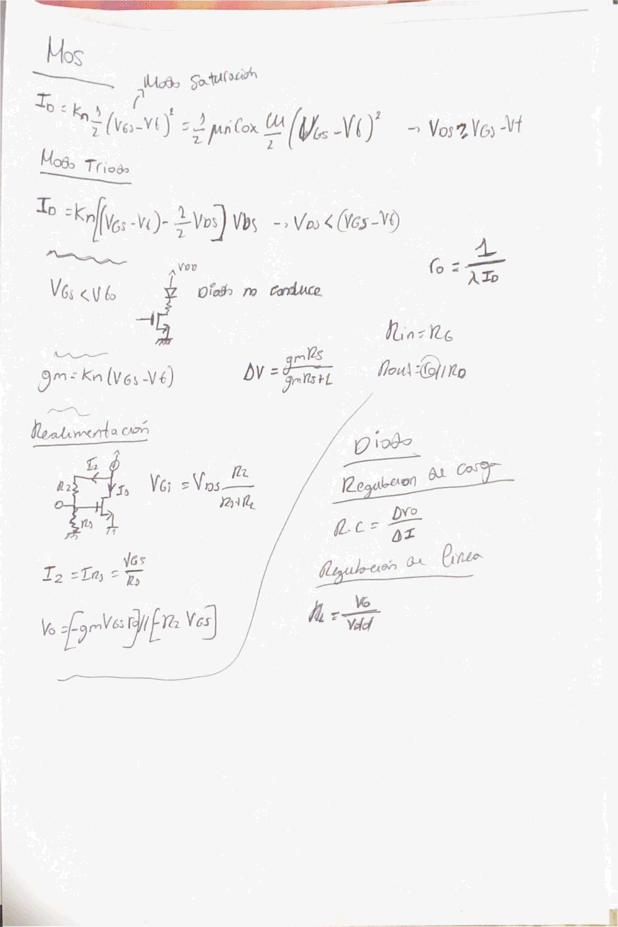 Mos
Modo Saturación
ID = Kn 1/2 (VGS-Vt)² = 1/2 μn Cox W/2 (VGS-Vt)² → VDS ≥ VGS-Vt
Modo Triodo
ID = Kn[(VGS-Vt) - 1/2 VDS] VDS → VDS < (VGS-Vt)
ro = 1/λID
VDD
VGS < Vto Diodo no conduce
Rin = RG
gm = Kn(VGS-Vt) ΔV = gmRS/gmRS+1 Rout = ro//RD
Realimentación
I2
R2 ID
R1
VGS = VDS
I2 = IR1 =
Vo = [-gmVGS ro]//[-R2 VGS]
Diodo
Regulacion de carga
R.C = ΔVo/ΔI
Regulación de linea
RL = Vo/Vdd